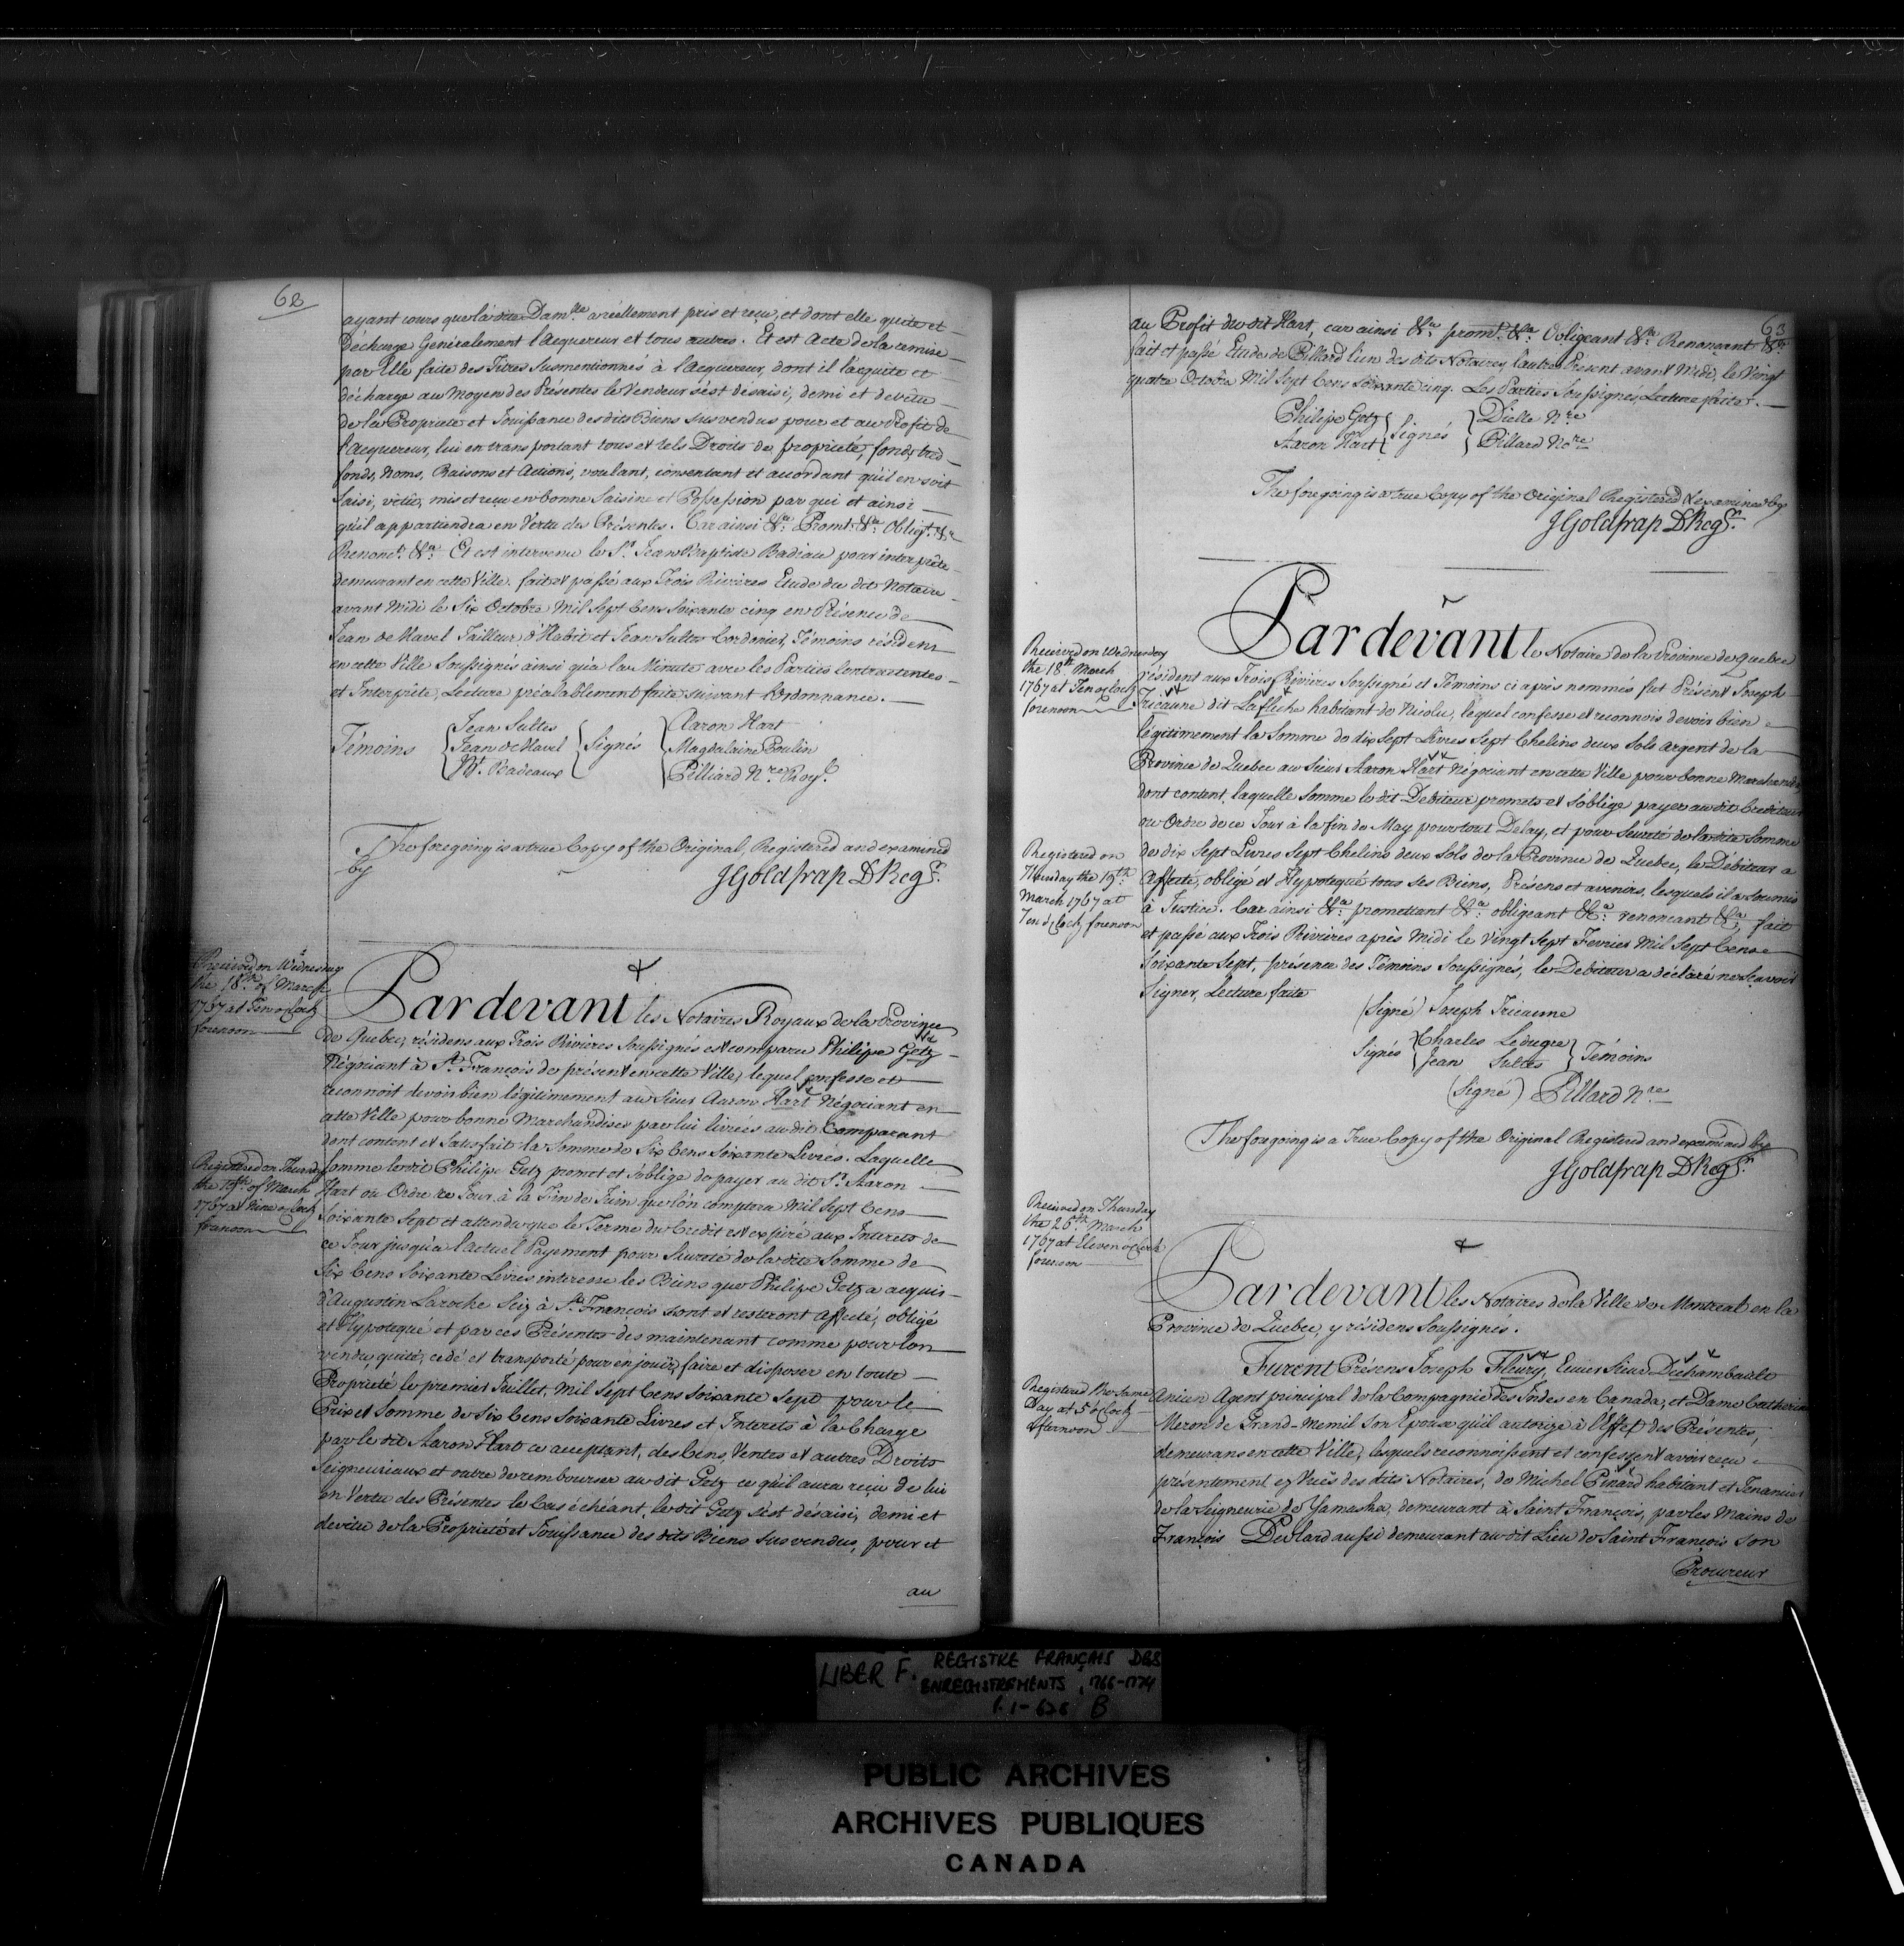 62
ayant cours que la dite Dam.lle a réellement pris et reçu, et dont elle quite et
Décharge Généralement l'acquereur et tous autres. Et est Acte de la remise
par Elle faite des Titres Susmentionnés à l'Acquereur, dont il l'acquite et
décharge au Moyen des Présentes le Vendeur s'est désaisi, demi et devêtu
de la Proprieté et Jouissance des dits Biens Susvendus pour et au Profit de
l'Acquereur, lui en transportant tous et tels Droits de propriété, fonds, tred
fonds, Noms, Raisons et Actions, voulant, consentant et accordant qu'il en soit
Saisi, vêtu, mis et reçu en bonne Saisine et Possession par qui et ainsi
qu'il appartiendra en Vertu des Présentes. Car ainsi &a. Promt. &a. Obligt. &a
Renonct. &a. Et est intervenu le Sr. Jean Baptiste Badeau pour interprête
demeurant en cette Ville. fait et passé aux Trois Rivières Etude du dit Notaire
avant Midi le Six Octobre Mil Sept Cens Soixante cinq en Présence de
Jean de Havel Tailleur d'Habit et Jean Sultes Cordonier, Témoins résidens
en cette Ville Soussignés ainsi qu'a la Minute avec les Parties Contractantes
et Interprète, Lecture préalablement faite suivant l'Ordonnance.
Témoins Jean Sultes Jean de Havel Bt. Badeaux Signés Aaron Hart Magdalaine Poulin Pilliard Nre. Royl.
The foregoing is a true Copy of the Original, Registered and examined
by
JGoldfrap DRegr.
Received on Wednesday
the 18th. of March
1767 at Ten o Clock
forenoon
Pardevant les Notaires Royaux de la Province
de Quebec, résidens aux Trois Rivières Soussignés est comparu Philipe Getz
Négociant à St. François de présent en cette Ville, lequel confesse et
reconnoit devoir bien légitimement au Sieur Aaron Hart Négociant en
cette Ville pour bonne Marchandises par lui livrées au dit Comparant
dont content et Satisfait la Somme de Six Cens Soixante Livres. Laquelle
Registered on Thursday
the 19th. of March
1767 at Nine o Clock
forenoon
Somme le dit Philipe Getz promet et s'oblige de payer au dit Sr. Aaron
Hart ou Ordre ce Jour, à la Fin de Juin que l'on comptera Mil Sept Cens
Soixante Sept et attendu que le Terme du Credit est expiré aux Interets de
ce Jour jusqu'a l'actuel Payement pour Sureté de la dite Somme de
Six Cens Soixante Livres interesse les Biens que Philipe Getz a acquis
d'Augustin Laroche Seiz à St. François sont et resteront affecté, obligé
et Hypotequé et par ces Présentes des maintenant comme pour lors
vendu, quité, cedé et transporté pour en jouir, faire et disposer en toute
Propriété le premier Juillet, Mil Sept Cens Soixante Sept pour le
Prix et Somme de Six Cens Soixante Livres et Interets à la Charge
par le dit Aaron Hart ce acceptant, des Cens, Ventes et autres Droits
Seigneuriaux et outre de rembourser au dit Getz ce qu'il aura reçu de lui
en Vertu des Présentes le Cas échéant, le dit Getz s'est désaisi, demi et
devêtu de la Proprieté et Jouissance des dits Biens Susvendus, pour et
au
63
au Profit du dit Hart, car ainsi &a. promt. &a. Obligeant &a. Renonçant &a.
fait et passé Etude de Pillard l'un des dits Notaires, l'autre Présent avant Midi, le Vingt
quatre Octobre Mil Sept Cens Soixante cinq. Les Parties Soussignés, Lecture faite.
Philipe Getz Aaron Hart Signés Dielle Nre Pillard Nore
The foregoing is a true Copy of the Original Registered & examined by
JGoldfrap DRegr.
Received on Wednesday
the 18th. March
1767 at Ten o Clock
forenoon
Pardevant le Notaire de la Province de Quebec
résident aux Trois Rivières Soussigné et Témoins ci après nommés fut Présent Joseph
Tricaune dit Lafleche habitant de Nicolu, lequel confesse et reconnois devoir bien
légitimement la Somme de dix Sept Livres Sept Chelins deux Sols argent de la
Province de Quebec au Sieur Aaron Hart Négociant en cette Ville pour bonne Marchandise
dont content, laquelle Somme le dit Debiteur promets et s'oblige payer au dit Crediteur
ou Ordre de ce Jour à la fin de May pour tout Delay, et pour Seureté de la dite Somme
Registered on
Thursday the 19th.
March 1767 at
Ten o Clock forenoon
de dix Sept Livres Sept Chelins deux Sols de la Province de Quebec, le Débiteur a
Affecté, obligé et Hypotequé tous ses Biens, Présens et avenirs, lesquels il a Soumis
à Justice. Car ainsi &a. promettant &a. obligeant &a. renoncant &a., fait
et passé aux Trois Rivières après Midi le vingt Sept Fevrier Mil Sept Cens
Soixante Sept, présence des Témoins Soussignés, le Debiteur a déclaré ne Sçavoir
Signer, Lecture faite
(Signé) Joseph Tricaune
Signés Charles Leduque Jean Sultes Témoins
(Signé) Pillard Nre
The foregoing is a True Copy of the Original Registered and examined by
JGoldfrap DRegr.
Received on Thursday
the 26th. March
1767 at Eleven o Clock
forenoon
Pardevant les Notaires de la Ville de Montreal en la
Province de Quebec, y résidens Soussignés.
Furent Présens Joseph Fleury, Ecuier Sieur Dechambault
Registered the same
Day at 5 o Clock
Afternoon
Ancien Agent principal de la Compagnie des Indes en Canada, et Dame Catherine
Meron de Grand-Memil Son Epouse qu'il autorize à l'Effet des Présentes,
demeurans en cette Ville, lesquels reconnoissent et confessent avoir reçu
présentement ez Vuës des dits Notaires, de Michel Pinard habitant et Tenancier
de la Seigneurie de Yamaska, demeurant à Saint François, par les Mains de
François Pinard aussi demeurant au dit Lieu de Saint François son
Procureur
LIBER F. REGISTRE FRANÇAIS DES
ENREGISTREMENTS, 1766-1774
f. 1-626 B
PUBLIC ARCHIVES
ARCHIVES PUBLIQUES
CANADA